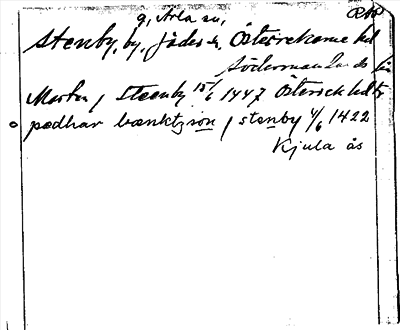 g, Arla sn,
Stenby, by, Jäders sn, Österrekarne hd
Södermanlands län
Marten j Steenby 15/6 1447 Österrek hdtr
o pædhar bænktzson j stenby 4/6 1422
Kjula ås